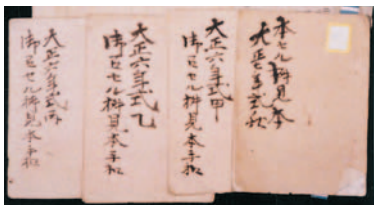 本セル柄見本
大正七年式秋
大正六年式甲
御召セル柄見本手扣
大正六年式乙
御召セル柄見本手扣
大正六年式丙
御召セル柄見本手扣